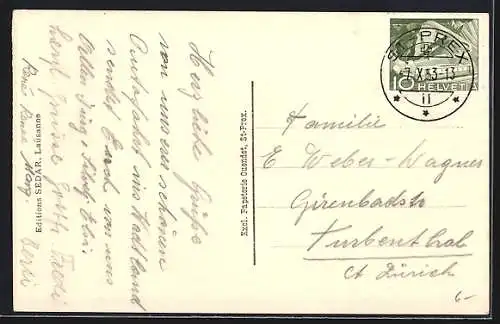 Herzliche Grüße
von unserer schönen
Autofahrt ins Waadtland
sendet Euch von uns
Allen
herzl. Grüsse Gretti Fredi
René Renée Marg. Berti
Editions SEDAR, Lausanne
Excl. Papeterie Quendet, St-Prex.
ST-PREX
7.X.53-13
II
10 HELVETIA
Familie
E. Weber-Wagner
Girenbadstr.
Turbenthal
Ct. Zürich
6-